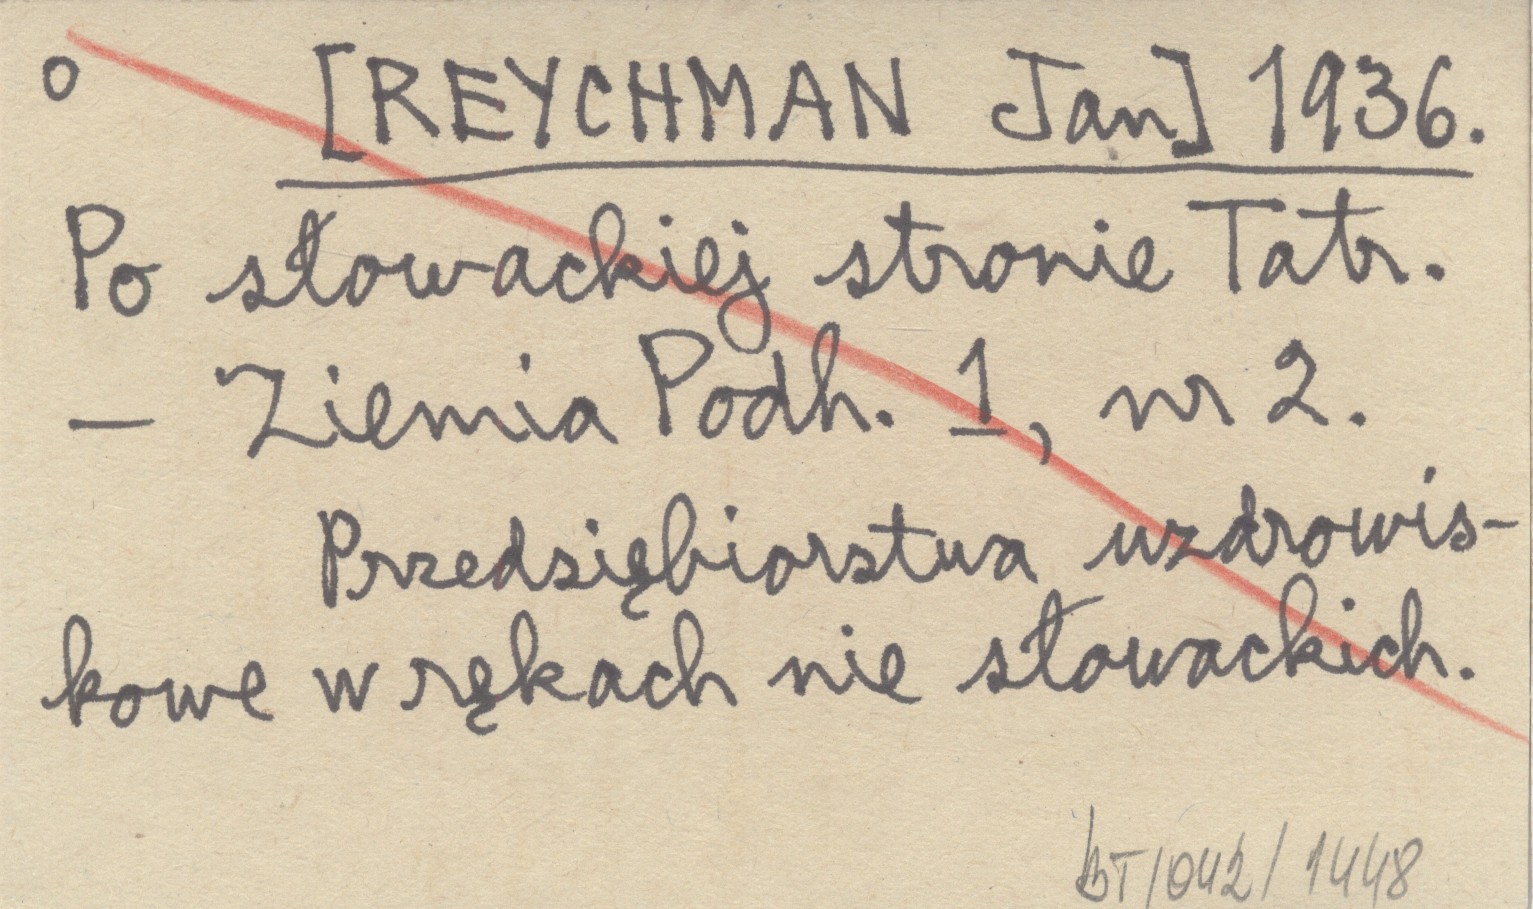 o [REYCHMAN Jan] 1936.
Po słowackiej stronie Tatr.
— Ziemia Podh. 1, nr 2.
Przedsiębiorstwa uzdrowis-
kowe w rękach nie słowackich.
BT/042/1448